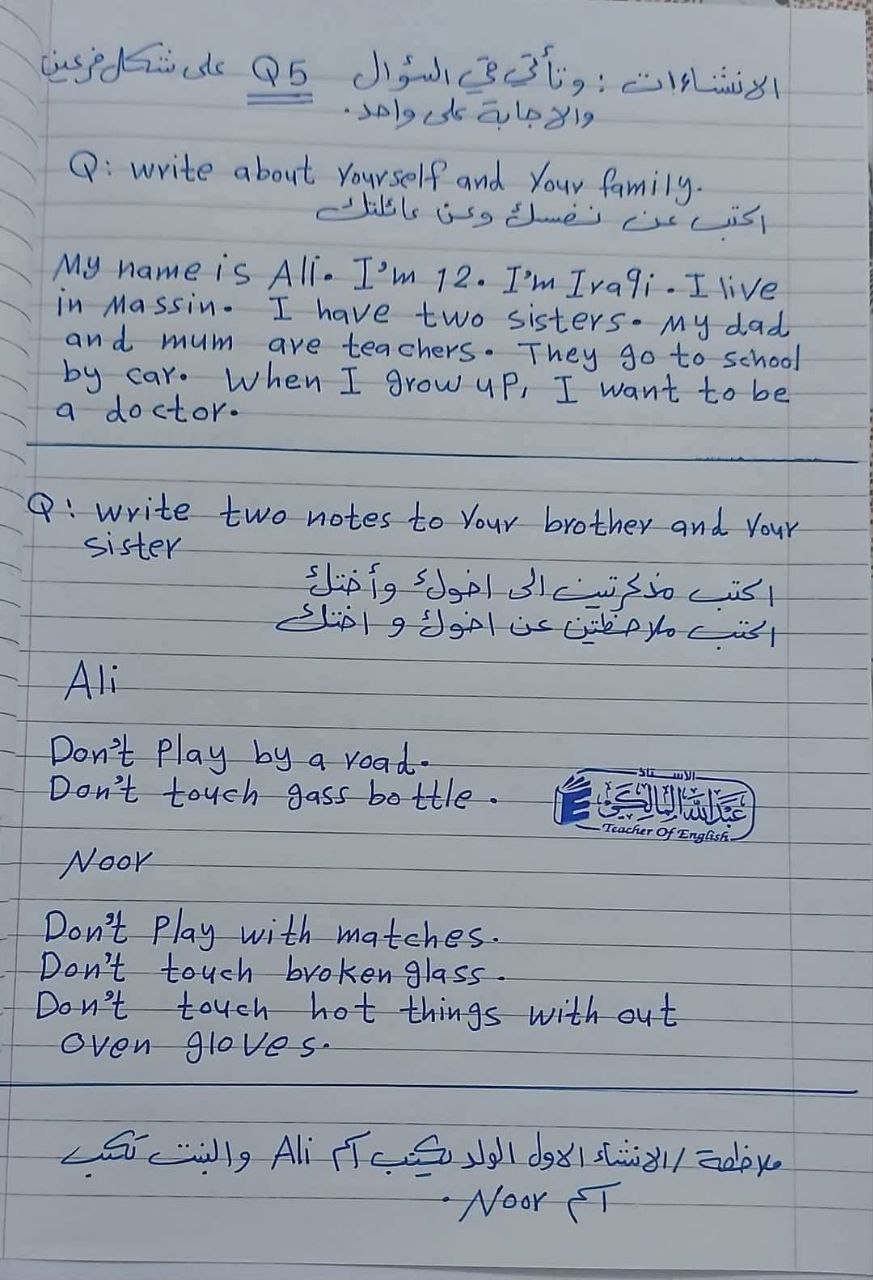 الانشاءات : وتأتي في السؤال Q5 على شكل فرعين
والاجابة على واحد.
Q: write about Yourself and Your family.
اكتب عن نفسك وعن عائلتك
My name is Ali. I'm 12. I'm Iraqi. I live
in Massin. I have two sisters. My dad
and mum are teachers. They go to school
by car. When I grow up, I want to be
a doctor.
Q: write two notes to Your brother and Your
sister
اكتب مذكرتين الى اخوك وأختك
اكتب ملاحظتين عن اخوك و اختك
Ali
Don't Play by a road.
Don't touch gass bottle.
الاستاذ
عبدالله المالكي
Teacher Of English
Noor
Don't Play with matches.
Don't touch broken glass.
Don't touch hot things with out
oven gloves.
ملاحظة / الانشاء الاول الولد يكتب اسم Ali والبنت تكتب
اسم Noor.